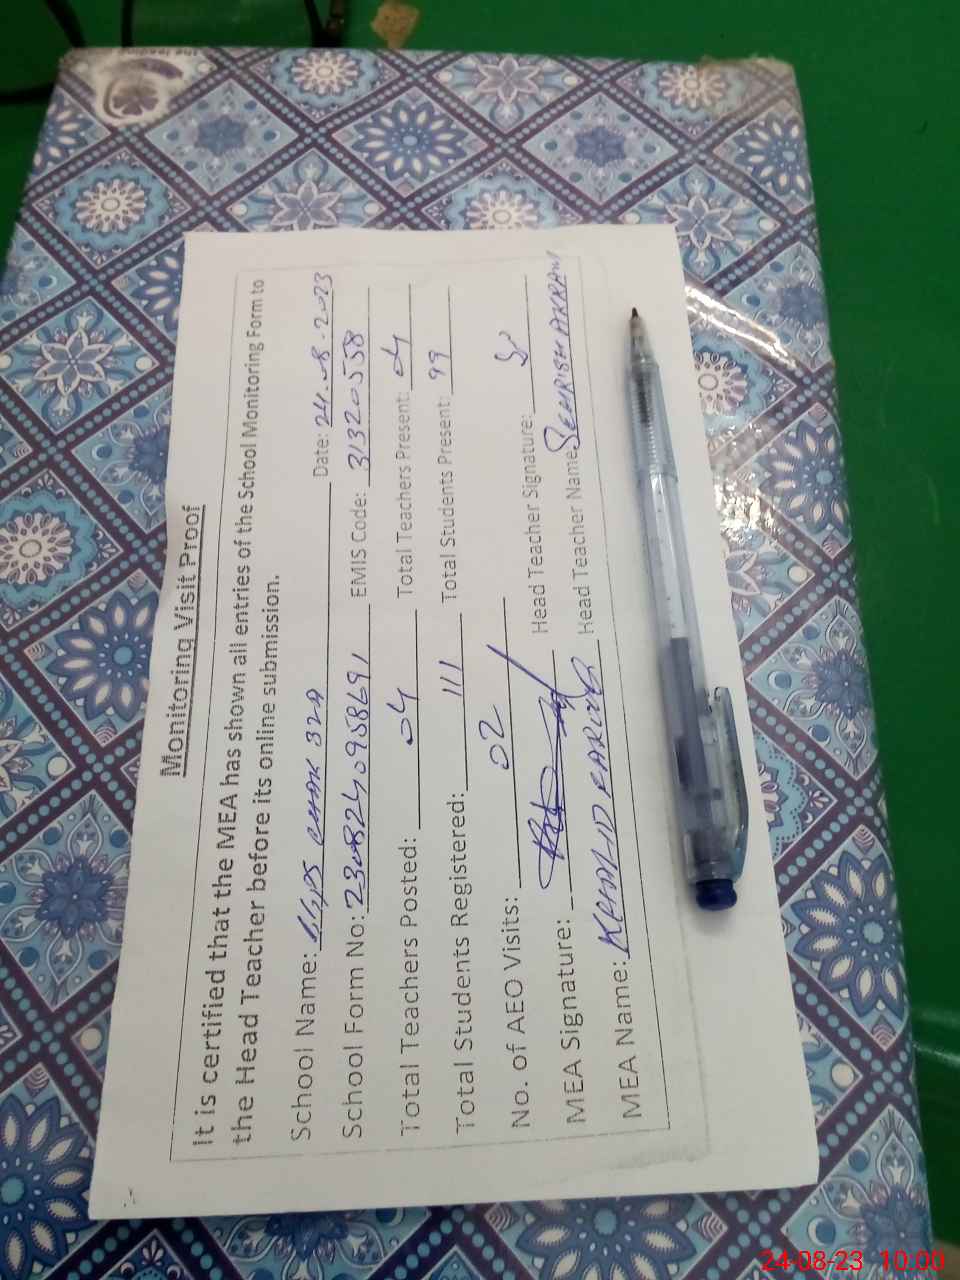 Monitoring Visit Proof
It is certified that the MEA has shown all entries of the School Monitoring Form to
the Head Teacher before its online submission.
School Name: GGPS CHAK 329 Date: 24.08.2023
School Form No: 2308240958691 EMIS Code: 31320558
Total Teachers Posted: 04 Total Teachers Present: 04
Total Students Registered: 111 Total Students Present: 99
No. of AEO Visits: 02
MEA Signature: Head Teacher Signature:
MEA Name: KHALID FAROOQ Head Teacher Name: SEHRISH AKRAM
24-08-23 10:00